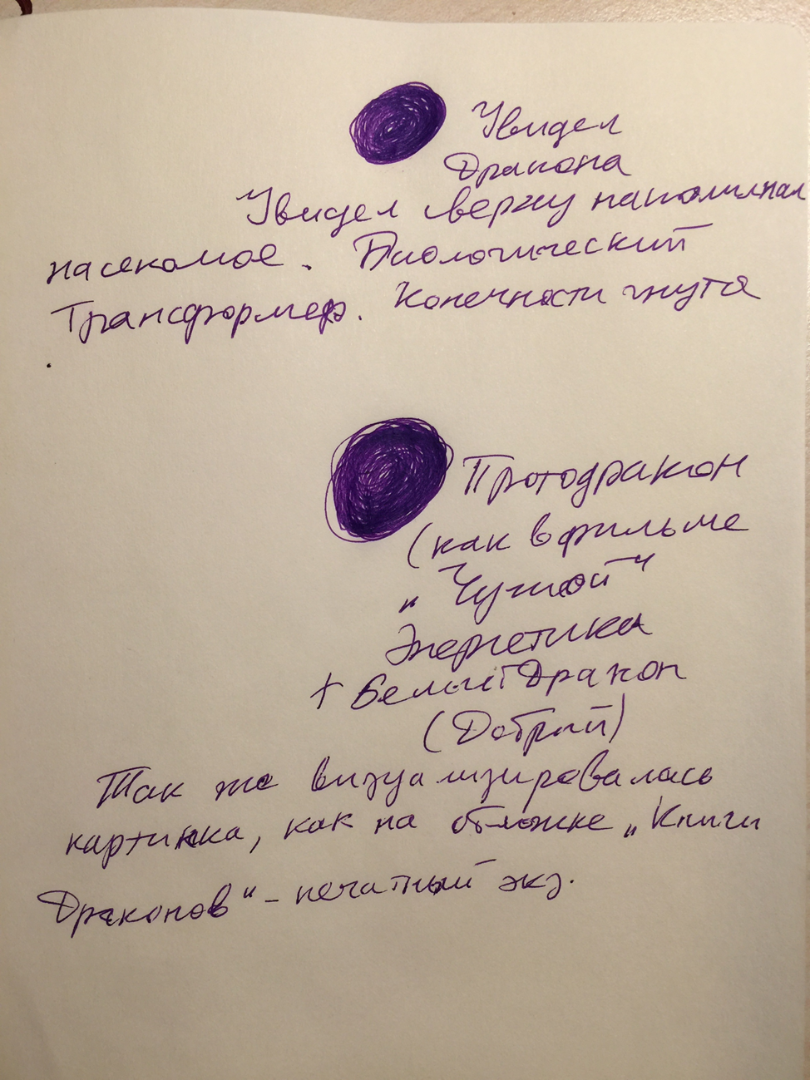 Увидел
Дракона
Увидел сверху напоминал
насекомое. Биологический
Трансформер. Конечности гнутся
.
Протодракон
(как в фильме
„Чужой"
Энергетика
+ Белый Дракон
(Добрый)
Так же визуализировалась
картинка, как на обложке „Книги
Драконов" – печатный экз.